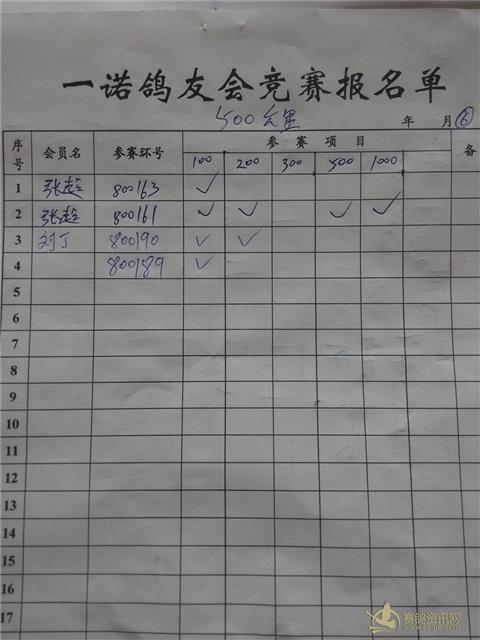 一诺鸽友会竞赛报名单
500公里 年 月 ⑥
序号 会员名 参赛环号 参赛项目 备
100 200 300 500 1000
1 张超 800163 ✓
2 张超 800161 ✓ ✓ ✓ ✓
3 刘丁 800190 ✓ ✓
4 800189 ✓
5
6
7
8
9
10
11
12
13
14
15
16
17
赛鸽资讯网